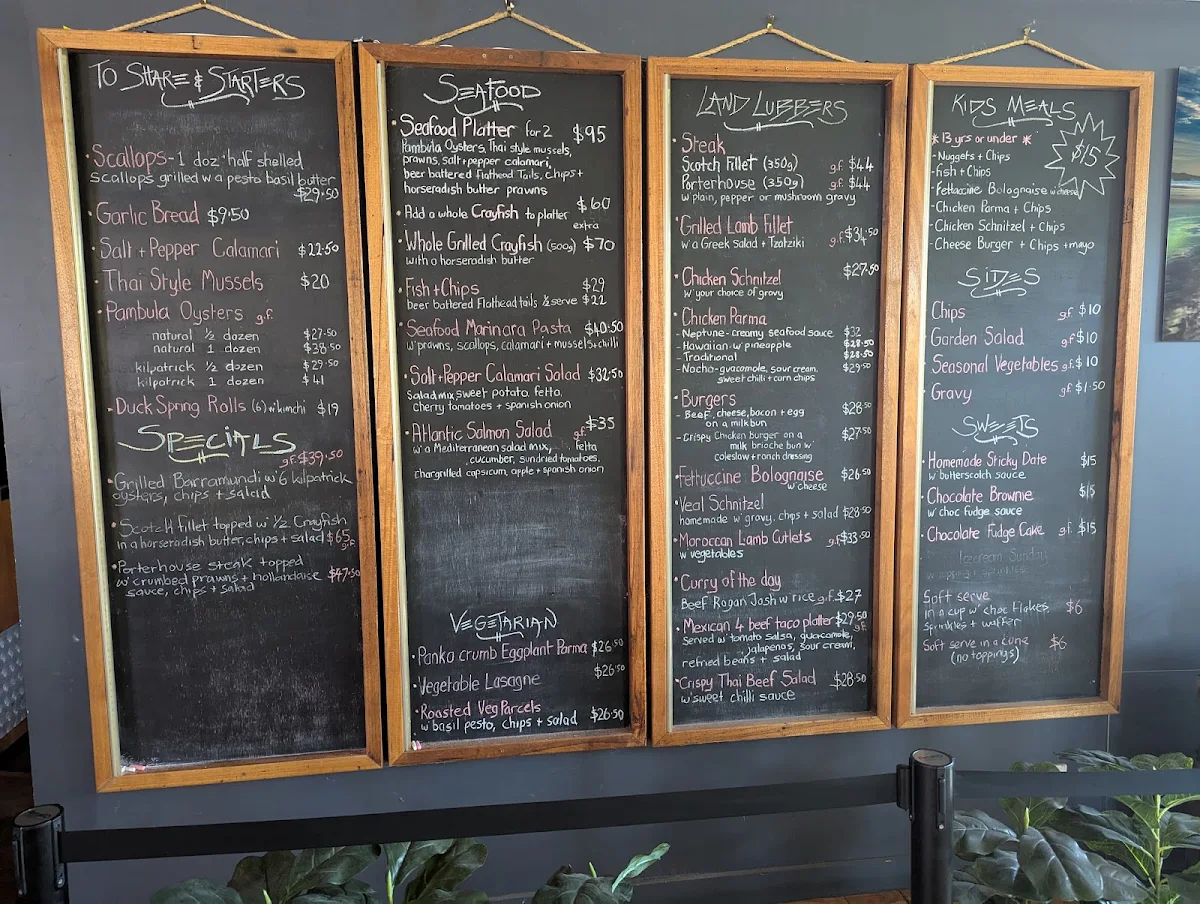 TO SHARE & STARTERS
• Scallops - 1 doz 'half shelled
scallops grilled w a pesto basil butter
$29.50
• Garlic Bread $9.50
• Salt + Pepper Calamari $22.50
• Thai Style Mussels $20
• Pambula Oysters g.f.
natural ½ dozen $27.50
natural 1 dozen $38.50
kilpatrick ½ dozen $29.50
kilpatrick 1 dozen $41
• Duck Spring Rolls (6) w kimchi $19
SPECIALS
g.f. $39.50
• Grilled Barramundi w' 6 kilpatrick
oysters, chips + salad
• Scotch fillet topped w' ½ Crayfish
in a horseradish butter, chips + salad $65
g.f.
• Porterhouse steak topped
w' crumbed prawns + hollandaise $47.50
sauce, chips + salad
SEAFOOD
• Seafood Platter for 2 $95
Pambula Oysters, Thai style mussels,
prawns, salt + pepper calamari,
beer battered Flathead Tails, chips +
horseradish butter prawns
• Add a whole Crayfish to platter $60
extra
• Whole Grilled Crayfish (500g) $70
with a horseradish butter
• Fish + Chips $29
beer battered Flathead tails ½ serve $22
• Seafood Marinara Pasta $40.50
w' prawns, scallops, calamari + mussels + chilli
• Salt + Pepper Calamari Salad $32.50
Salad mix, sweet potato, fetta,
cherry tomatoes + spanish onion
• Atlantic Salmon Salad g.f. $35
w' a Mediterranean salad mix, fetta
cucumber, sundried tomatoes,
chargrilled capsicum, apple + spanish onion
VEGETARIAN
• Panko crumb Eggplant Parma $26.50
• Vegetable Lasagne $26.50
• Roasted Veg Parcels
w' basil pesto, chips + salad $26.50
LAND LUBBERS
• Steak
Scotch Fillet (350g) g.f. $44
Porterhouse (350g) g.f. $44
w plain, pepper or mushroom gravy
• Grilled Lamb Fillet
w' a Greek Salad + Tzatziki g.f. $34.50
• Chicken Schnitzel $27.50
w' your choice of gravy
• Chicken Parma
- Neptune - creamy seafood sauce $32
- Hawaiian - w' pineapple $28.50
- Traditional $28.50
- Nacho - guacamole, sour cream, $29.50
sweet chilli + corn chips
• Burgers
- Beef, cheese, bacon + egg $28.50
on a milk bun
- Crispy Chicken burger on a $27.50
milk brioche bun w'
coleslaw + ranch dressing
• Fettuccine Bolognaise $26.50
w' cheese
• Veal Schnitzel
homemade w' gravy, chips + salad $28.50
• Moroccan Lamb Cutlets g.f. $33.50
w vegetables
• Curry of the day
Beef Rogan Josh w' rice g.f. $27
• Mexican 4 beef taco platter $29.50
g.f.
served w' tomato salsa, guacamole,
jalapenos, sour cream,
refried beans + salad
• Crispy Thai Beef Salad $28.50
w' sweet chilli sauce
KIDS MEALS
* 13 yrs or under *
$15
- Nuggets + Chips
- fish + Chips
- Fettuccine Bolognaise w' cheese
- Chicken Parma + Chips
- Chicken Schnitzel + Chips
- Cheese Burger + Chips + mayo
SIDES
Chips g.f. $10
Garden Salad g.f. $10
Seasonal Vegetables g.f. $10
Gravy g.f. $1.50
SWEETS
• Homemade Sticky Date $15
w butterscotch sauce
• Chocolate Brownie $15
w' choc fudge sauce
• Chocolate Fudge Cake g.f. $15
Icecream Sundae
Soft serve
in a cup w' choc flakes $6
sprinkles + waffer
Soft serve in a cone $6
(no toppings)